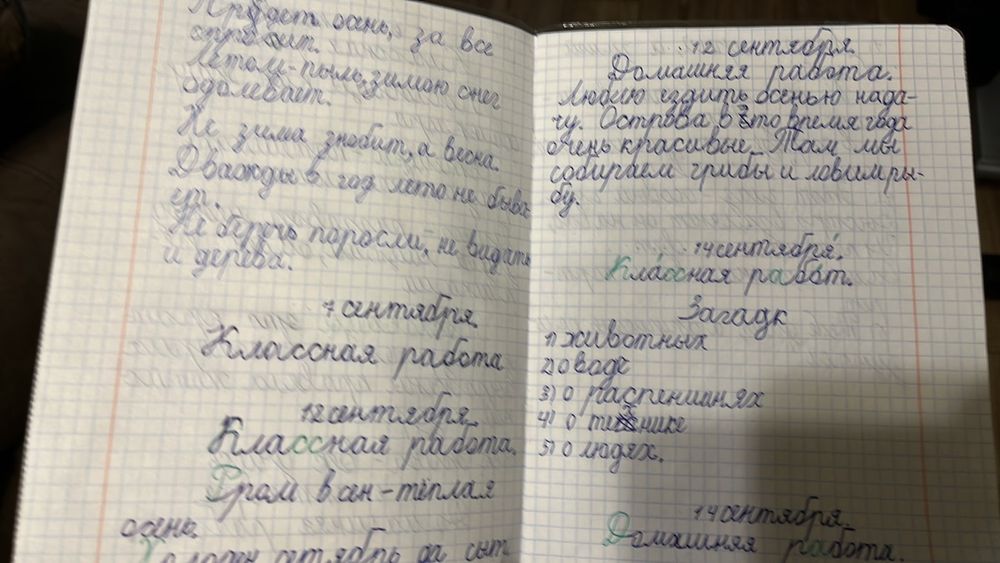 Придет осень, за все
спросит.
Летом-пыль, зимою снег
одолевает.
Не зима знобит, а весна.
Дважды в год лето не быва-
ет.
Не беречь поросли, не видать
и дерева.
7 сентября.
Классная работа
12 сентября.
Классная работа.
Гром в сен-теплая
осень.
Холоден октябрь да сыт
12 сентября.
Домашняя работа.
Люблю ездить осенью на да-
чу. Острова в это время года
очень красивые. Там мы
собираем грибы и ловим ры-
бу.
14 сентября.
Классная работ.
Загадк
1) животных
2) о воде
3) о распениянях
4) о технике
5) о людях.
14 сентября.
Домашняя работа.